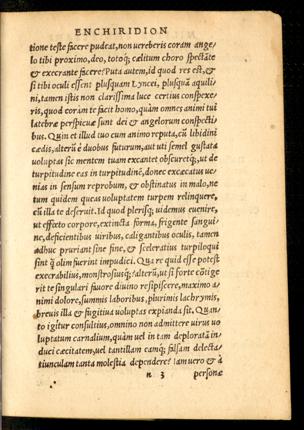 ENCHIRIDION
tione teste facere pudeat, non uereberis coram ange⸗
lo tibi proximo, deo, totoq; cælitum choro spectāte
& execrante facere? Puta autem, id quod res est, &
si tibi oculi essent plusquam Lyncei, plusquā aquili
ni, tamen istis non clarissima luce certius conspexe⸗
ris, quod corā te facit homo, quàm omnes animi tui
latebræ perspicuæ sunt dei & angelorum conspecti
bus. Quin et illud tuo cum animo reputa, cū libidini
cædis, alterū è duobus futurum, aut uti semel gustata
uoluptas sic mentem tuam excantet obscuretq;, ut de
turpitudine eas in turpitudinē, donec excæcatus ue⸗
nias in sensum reprobum, & obstinatus in malo, ne
tum quidem queas uoluptatem turpem relinquere,
cū illa te deseruit. Id quod plerisq; uidemus euenire,
ut effœto corpore, extincta forma, frigente sangui⸗
ne, deficientibus uiribus, caligantibus oculis, tamen
adhuc pruriant sine fine, & sceleratius turpiloqui
sint ꝙ̃ olim fuerint impudici. Qua re quid esse potest
execrabilius, monstrosiusq;? alterū, ut si forte cōtige
rit te singulari fauore diuino resipiscere, maximo a⸗
nimi dolore, summis laboribus, plurimis lachrymis,
breuis illa & fugitiua uoluptas expianda sit. Quan
to igitur consultius, omnino non admittere uirus uo
luptatum carnalium, quàm uel in tam deploratā in⸗
duci cæcitatem, uel tantillam eamq; falsam delecta⸗
tiunculam tanta molestia dependere? Iam uero & à
n 3 personæ